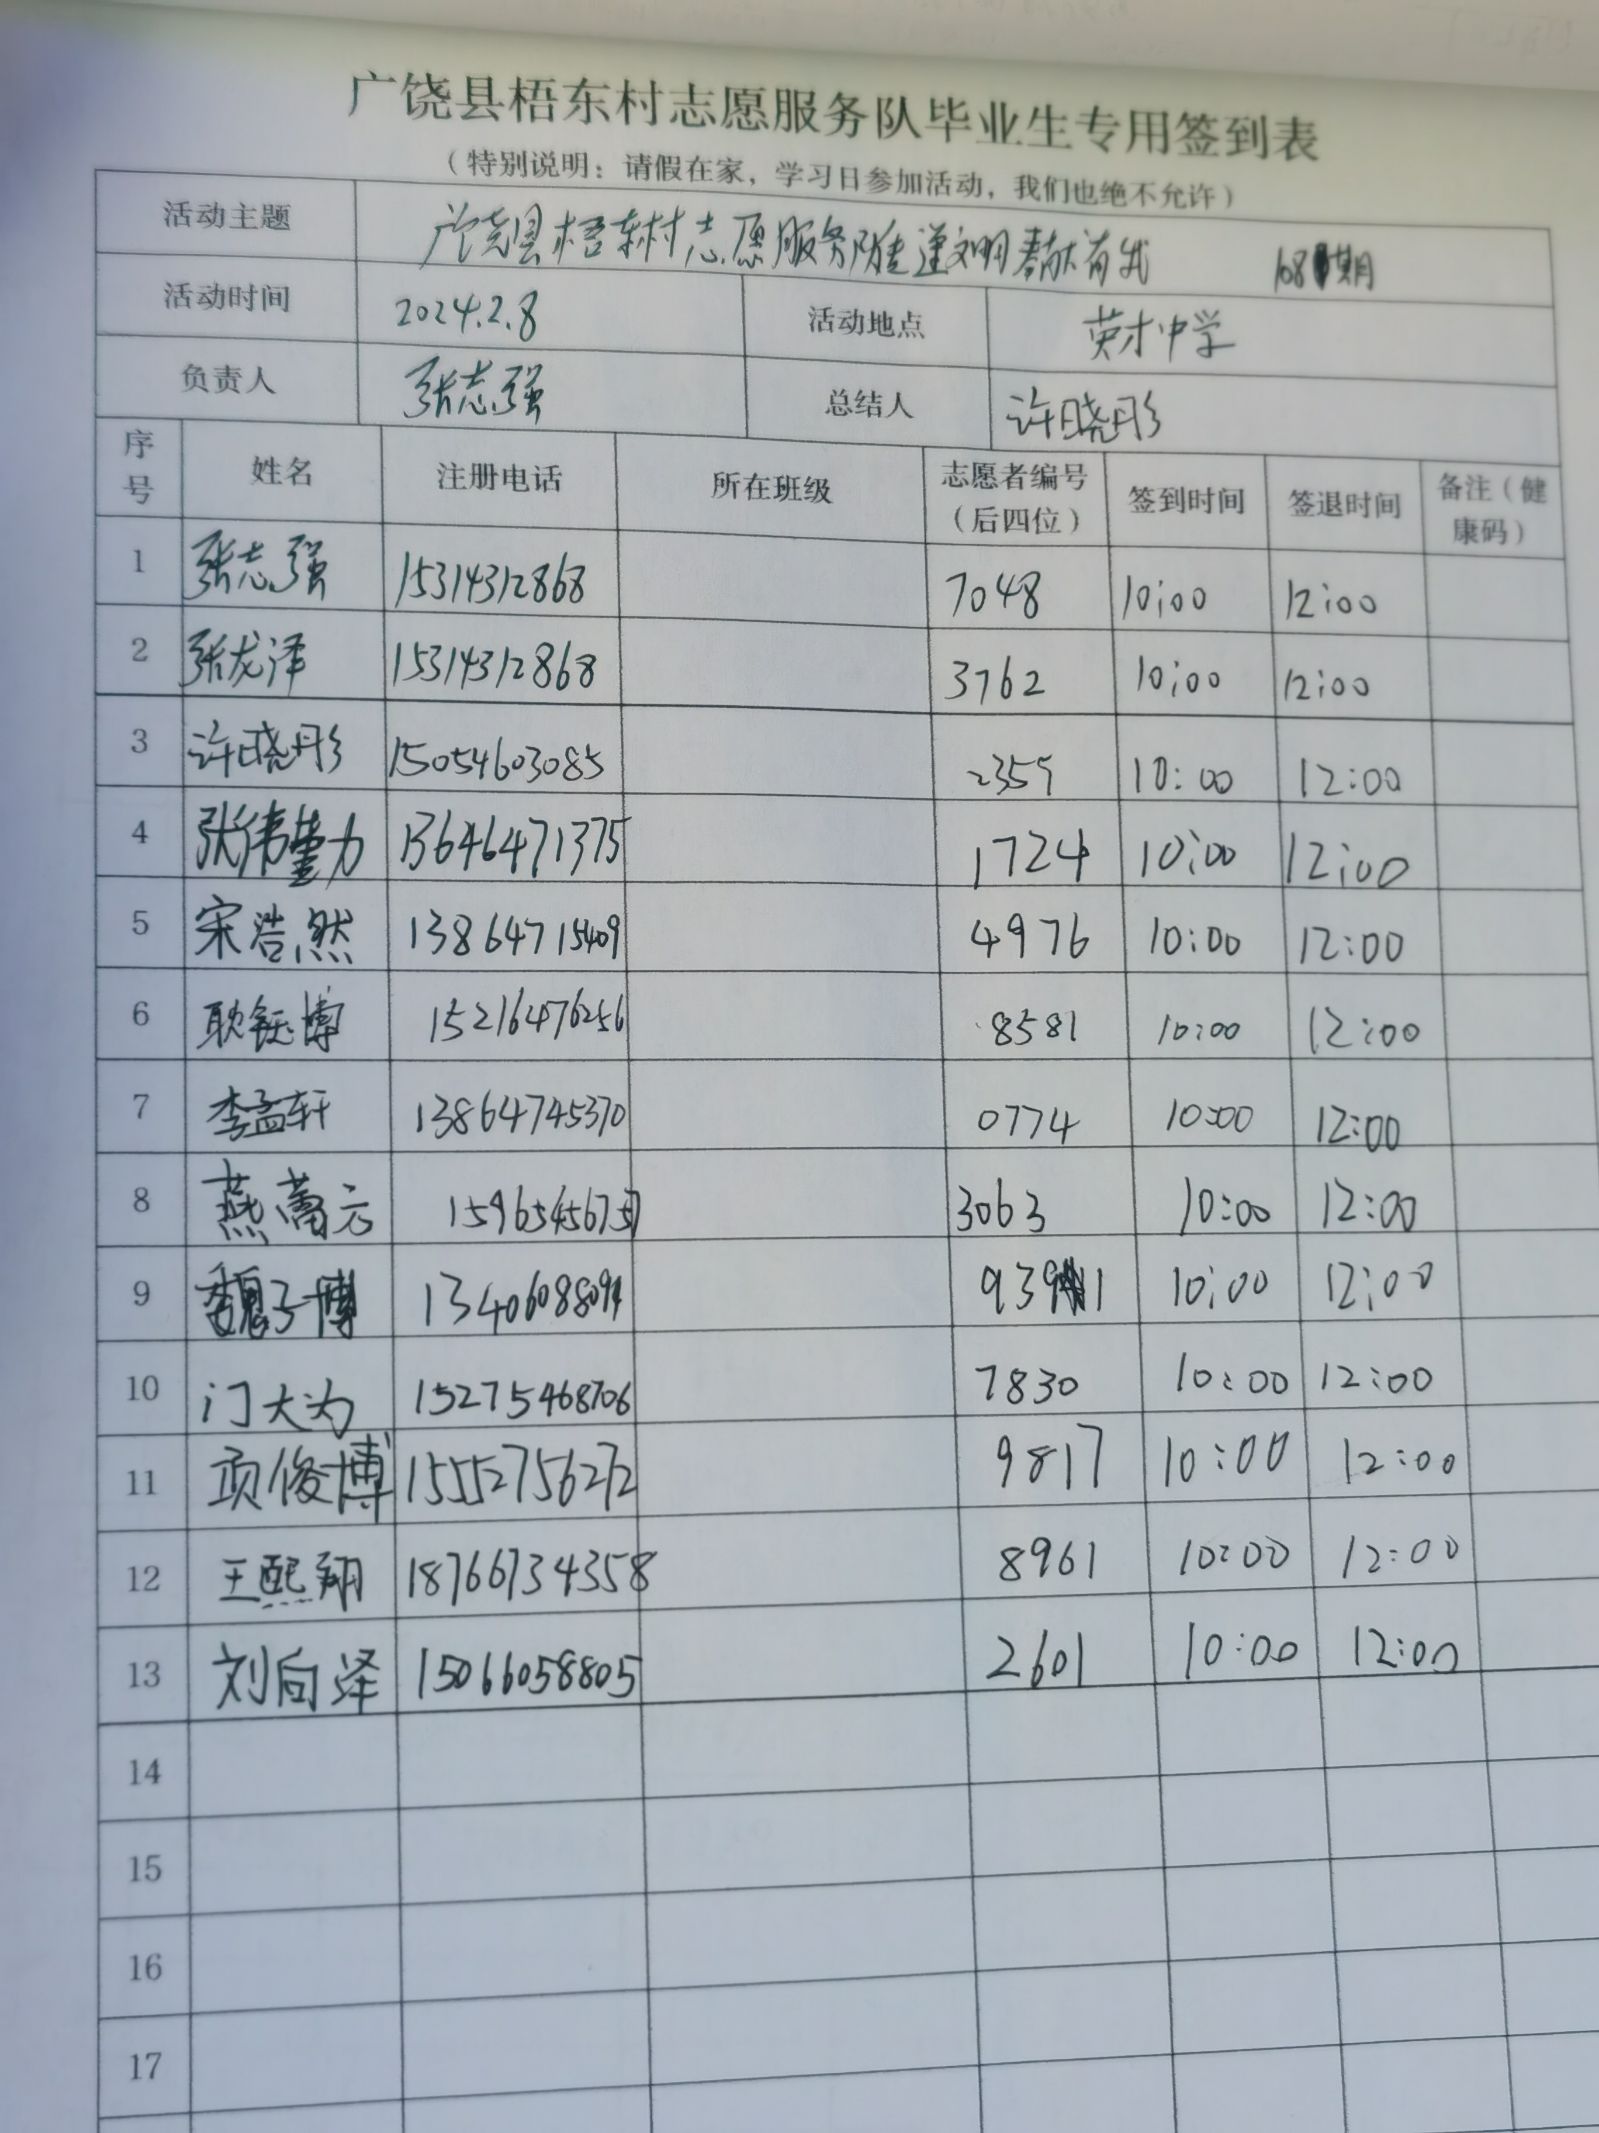 广饶县梧东村志愿服务队毕业生专用签到表
（特别说明：请假在家，学习日参加活动，我们也绝不允许）
活动主题 广饶县梧东村志愿服务队走进文明奉献有我 168期
活动时间 2024.2.8 活动地点 英才中学
负责人 张志强 总结人 许晓彤
序号 姓名 注册电话 所在班级 志愿者编号（后四位） 签到时间 签退时间 备注（健康码）
1 张志强 15314312868 7048 10:00 12:00
2 张龙泽 15314312868 3762 10:00 12:00
3 许晓彤 15054603085 2359 10:00 12:00
4 张伟 13646471375 1724 10:00 12:00
5 宋浩然 13864715409 4976 10:00 12:00
6 耿钰博 15216476256 8581 10:00 12:00
7 李孟轩 13864745370 0774 10:00 12:00
8 燕 元 3063 10:00 12:00
9 魏子博 10:00 12:00
10 门大为 15275468706 7830 10:00 12:00
11 项俊博 15552756272 9817 10:00 12:00
12 王熙翔 18766734358 8961 10:00 12:00
13 刘向泽 15066058805 2601 10:00 12:00
14
15
16
17